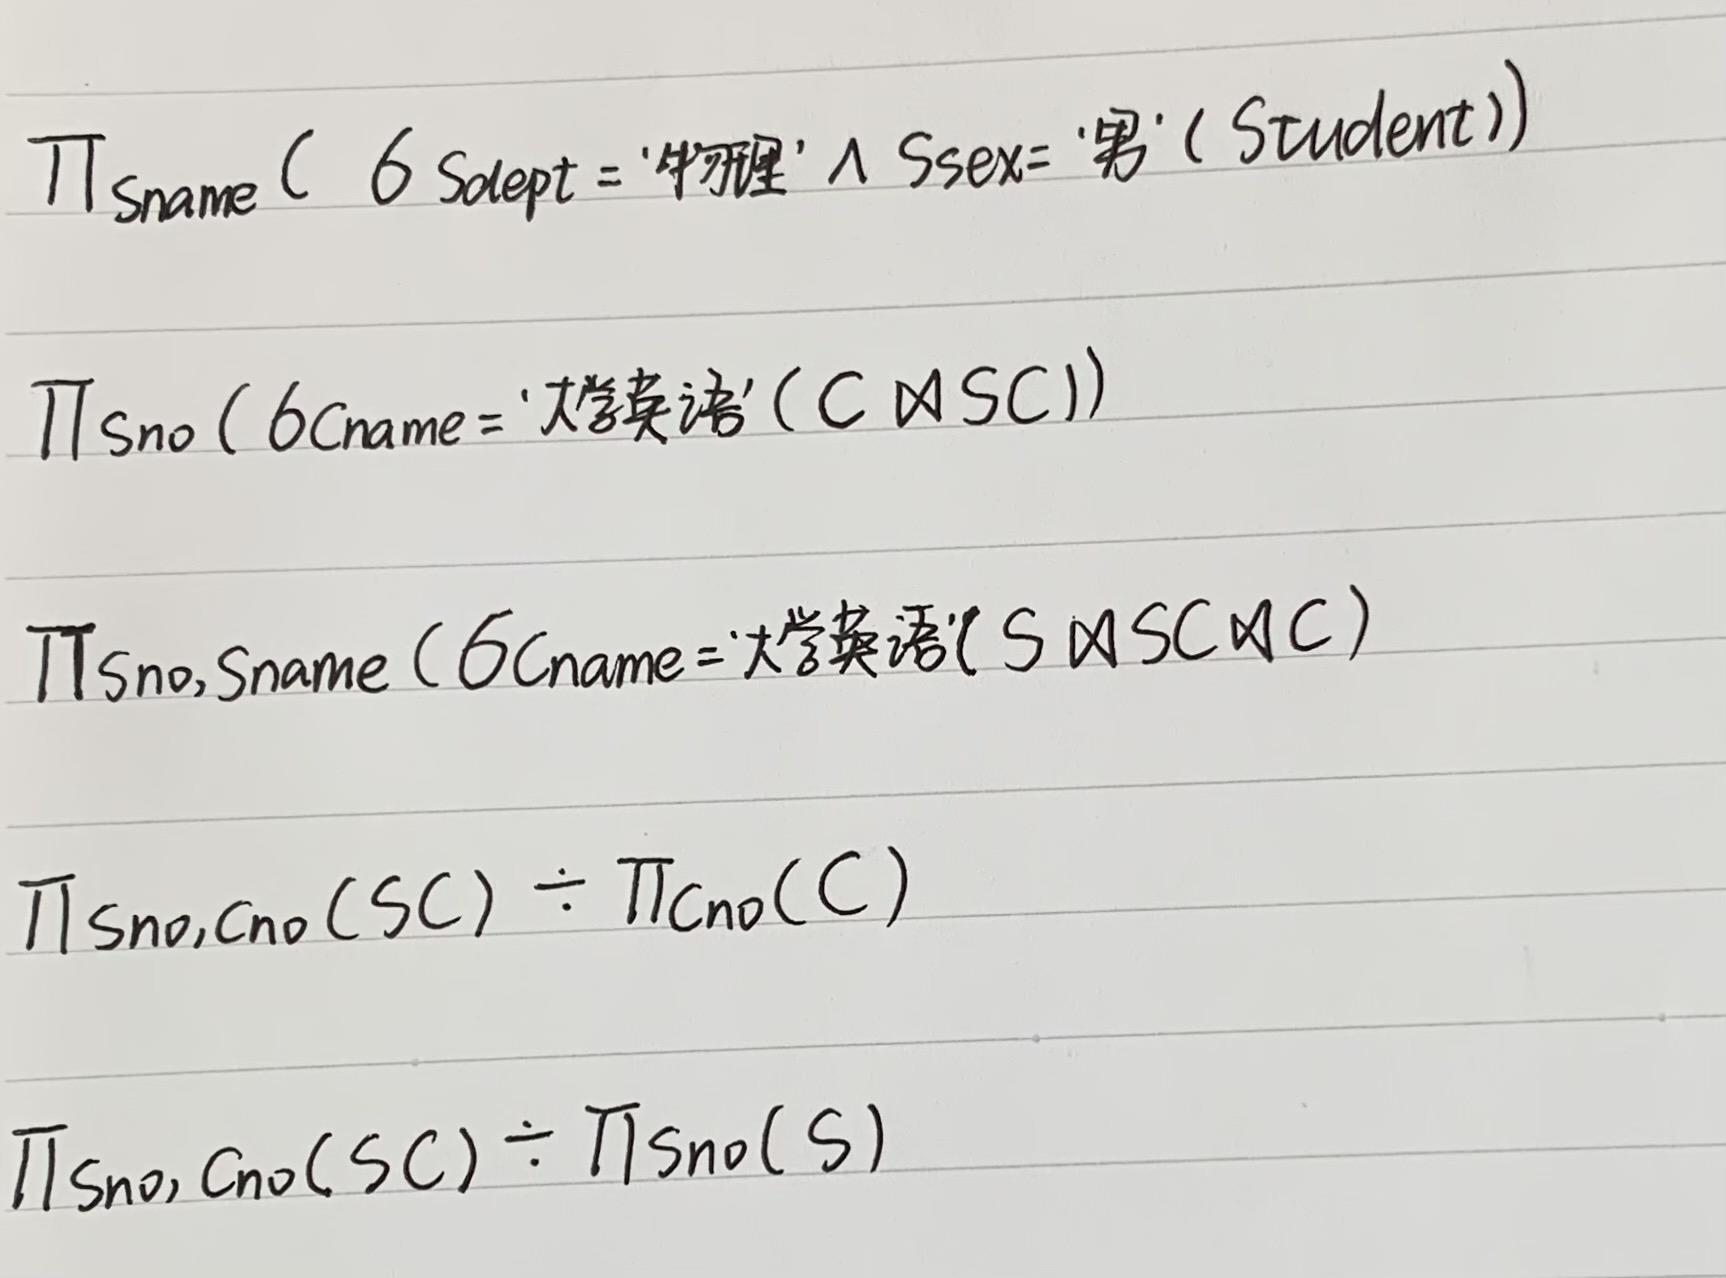 Π Sname ( σ Sdept = '物理' ∧ Ssex = '男' ( Student))
Π Sno ( σ Cname = '大学英语' ( C ⋈ SC))
Π Sno, Sname ( σ Cname = '大学英语' ( S ⋈ SC ⋈ C )
Π Sno, Cno (SC) ÷ Π Cno (C)
Π Sno, Cno (SC) ÷ Π Sno (S)